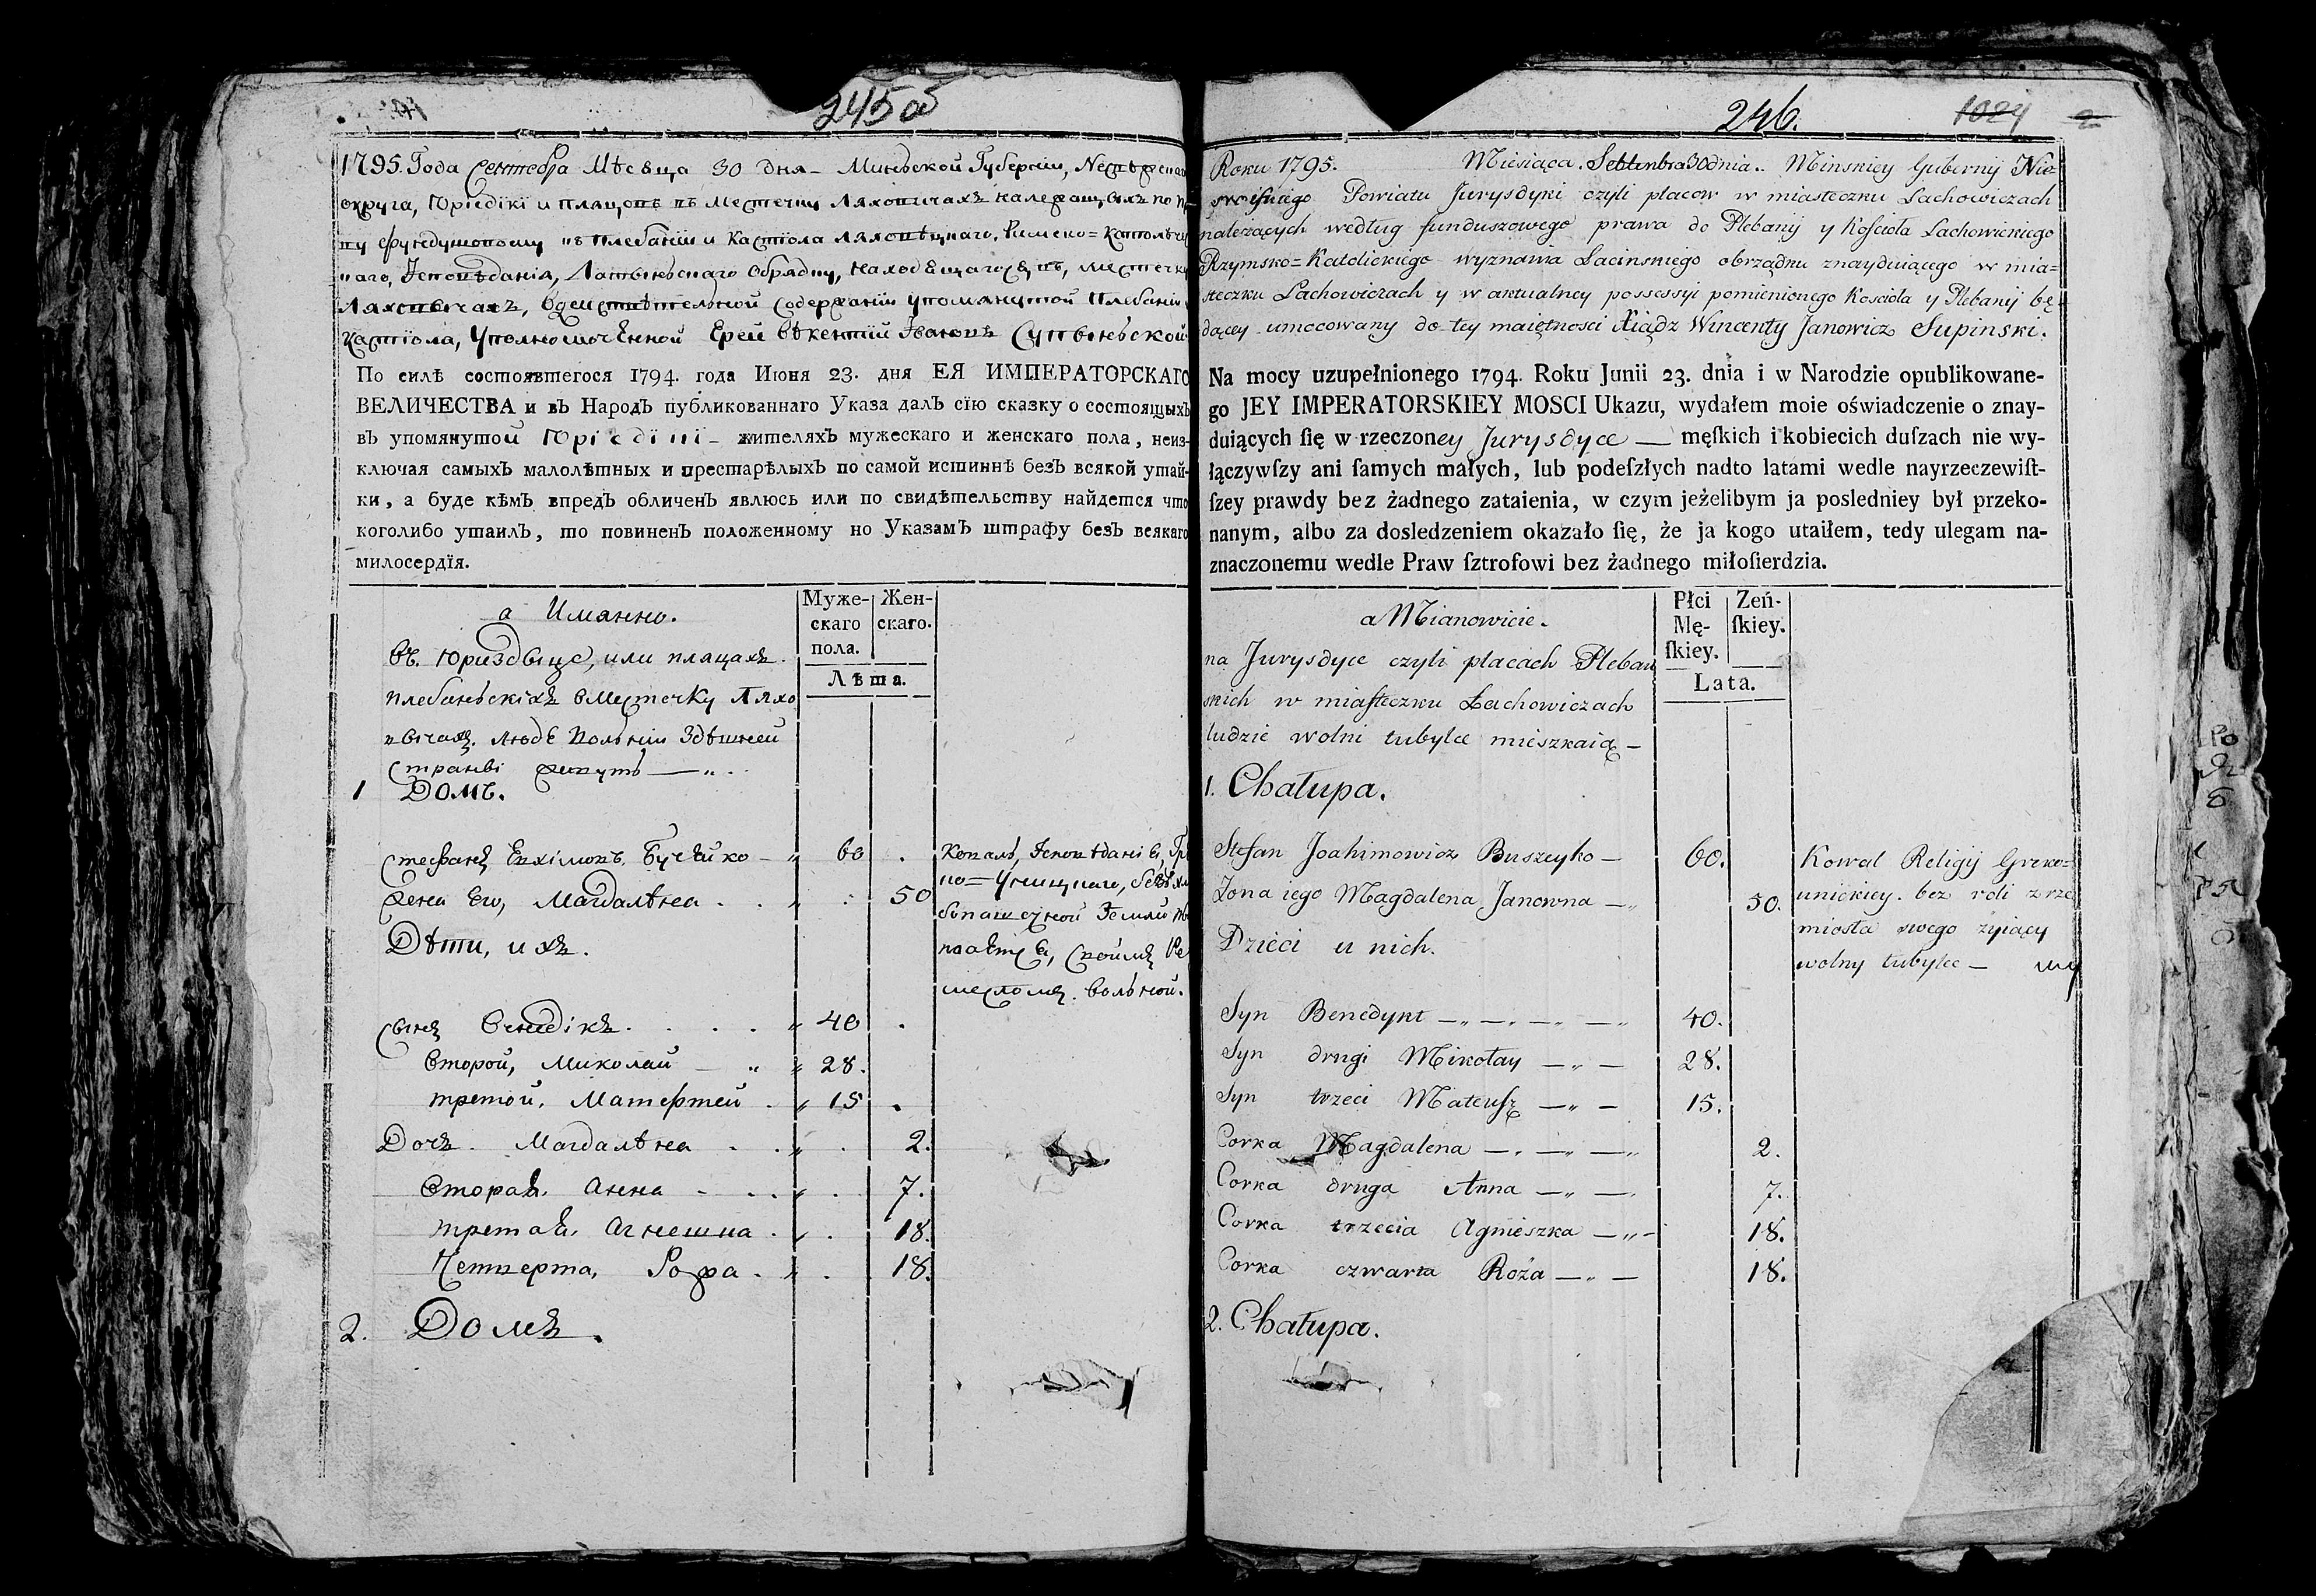 245об
1795. Года Сентебра Мѣсеца 30 дня – Миньской Губернiи,
округа, Юрисдiкi и пляцовъ въ местечку Ляховичахъ
фундушовому плебанiи и Костiола Римско=Католѣч
наго, Исповѣданiя, Латыньскаго Обрадку, находещагосе въ, местечку
Ляховичахъ, вдействѣтельной содержанiи упомянутой Плебанiи
Кастiола, Уполномочѣнной Ерей Вѣкентiй Ивановъ Супѣньской
По силѣ состоявтегося 1794. года Июня 23. дня ЕЯ ИМПЕРАТОРСКАГО
ВЕЛИЧЕСТВА и въ Народъ публикованнаго Указа далъ сїю сказку о состоящыхъ
въ упомянутой Юрiсдiцi – жителяхъ мужескаго и женскаго пола, неиз-
ключая самыхъ малолѣтных и престарѣлыхъ по самой истиннѣ безъ всякой утай-
ки, а буде кѣмъ впредъ обличенъ явлюсь или по свидѣтельству найдется что
коголибо утаилъ, то повиненъ положенному но Указамъ штрафу безъ всякаго
милосердїя.
а Имянно.
Муже-
скаго
пола.
Жен-
скаго.
Лѣта.
въ. Юриздыце, или пляцахъ.
плебаньскiхъ вместечку Ляхо
вычахъ. людѣ вольнiи здѣшней
страны живутъ — „ .
1 Домъ.
Стефанъ Евхiмовъ. Бучѣйко – „ 60 .
жена Его, Магдалѣна . . „ . 50
Дѣти, ихъ.
Коваль, Исповѣданiѣ,
Унiцкаго,
пашечной Земли
своймъ Ре
месломъ. вольной.
сынъ Венедiкъ. . . . „ 40 .
второй, Миколай – „ „ 28.
третой, Матефтей . „ 15 .
Дочъ. Магдалѣна . . „ . 2.
вторая. Анна – . . „ . 7.
третая. Агнешка . „ . 18.
Четверта, Рожа . „ . 18.
2. Домъ.
246. 1024
Roku 1795. Miesiąca. Septenbra 30 dnia.. Minskiey Gubernij Nie=
swiskiego Powiatu Jurysdyki czyli placow w miasteczku Lachowiczach
należących według funduszowego prawa do Plebanij y Kościoła Lachowickiego
Rzymsko=Katolickiego wyznania Lacinskiego obrządku znayduiącego w mia=
steczku Lachowiczach y w aktualney possessyi pomienionego Kościoła y Plebanij bę
dącey umocowany do tey maiętnosci Xiądz Wincenty Janowicz Supinski.
Na mocy uzupełnionego 1794. Roku Junii 23. dnia i w Narodzie opublikowane-
go JEY IMPERATORSKIEY MOSCI Ukazu, wydałem moie oświadczenie o znay-
duiących ſię w rzeczoney Jurysdyce — męſkich i kobiecich duſzach nie wy-
łączywſzy ani ſamych małych, lub podeſzłych nadto latami wedle nayrzeczewiſt-
ſzey prawdy bez żadnego zataienia, w czym jeżelibym ja posledniey był przeko-
nanym, albo za dosledzeniem okazało ſię, że ja kogo utaiłem, tedy ulegam na-
znaczonemu wedle Praw ſztrofowi bez żadnego miłoſierdzia.
a Mianowicie.
Płci
Mę-
ſkiey.
Zeń-
ſkiey.
Lata.
na Jurysdyce czyli placach Pleban
skich w miasteczku Lachowiczach
ludzie wolni tubylce mieszkaią –
1. Chałupa.
Stefan Joahimowicz Buszeyko – 60.
Żona iego Magdalena Janowna – „ 50.
Dzieci u nich.
Kowal Religij Greko=
unickiey. bez roli z rze
miosła swego żyiący
wolny tubylec –
Syn Benedykt – „ – „ – „ – „ 40.
Syn drugi Mikołay – „ – 28.
Syn trzeci Mateusz – „ – 15.
Corka Magdalena – „ – „ – „ 2.
Corka druga Anna – „ – 7.
Corka trzecia Agnieszka – „ – 18.
Corka czwarta Roża – „ – 18.
2. Chałupa.